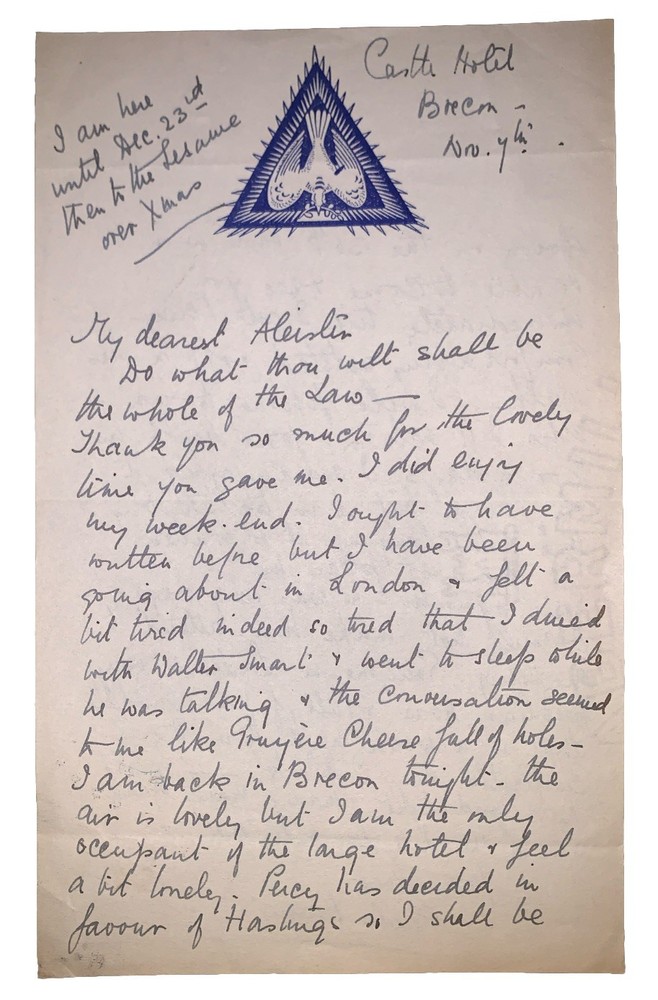 I am here
until Dec. 23rd
then to the Sesame
over Xmas
Castle Hotel
Brecon -
Nov. 7th.
My dearest Aleister
Do what thou wilt shall be
the whole of the Law —
Thank you so much for the lovely
time you gave me. I did enjoy
my week-end. I ought to have
written before but I have been
going about in London & felt a
bit tired indeed so tired that I dined
with Walter Smart & went to sleep while
he was talking & the conversation seemed
to me like Gruyère Cheese full of holes -
I am back in Brecon tonight - the
air is lovely but I am the only
occupant of the large hotel & feel
a bit lonely. Percy has decided in
favour of Hastings so I shall be